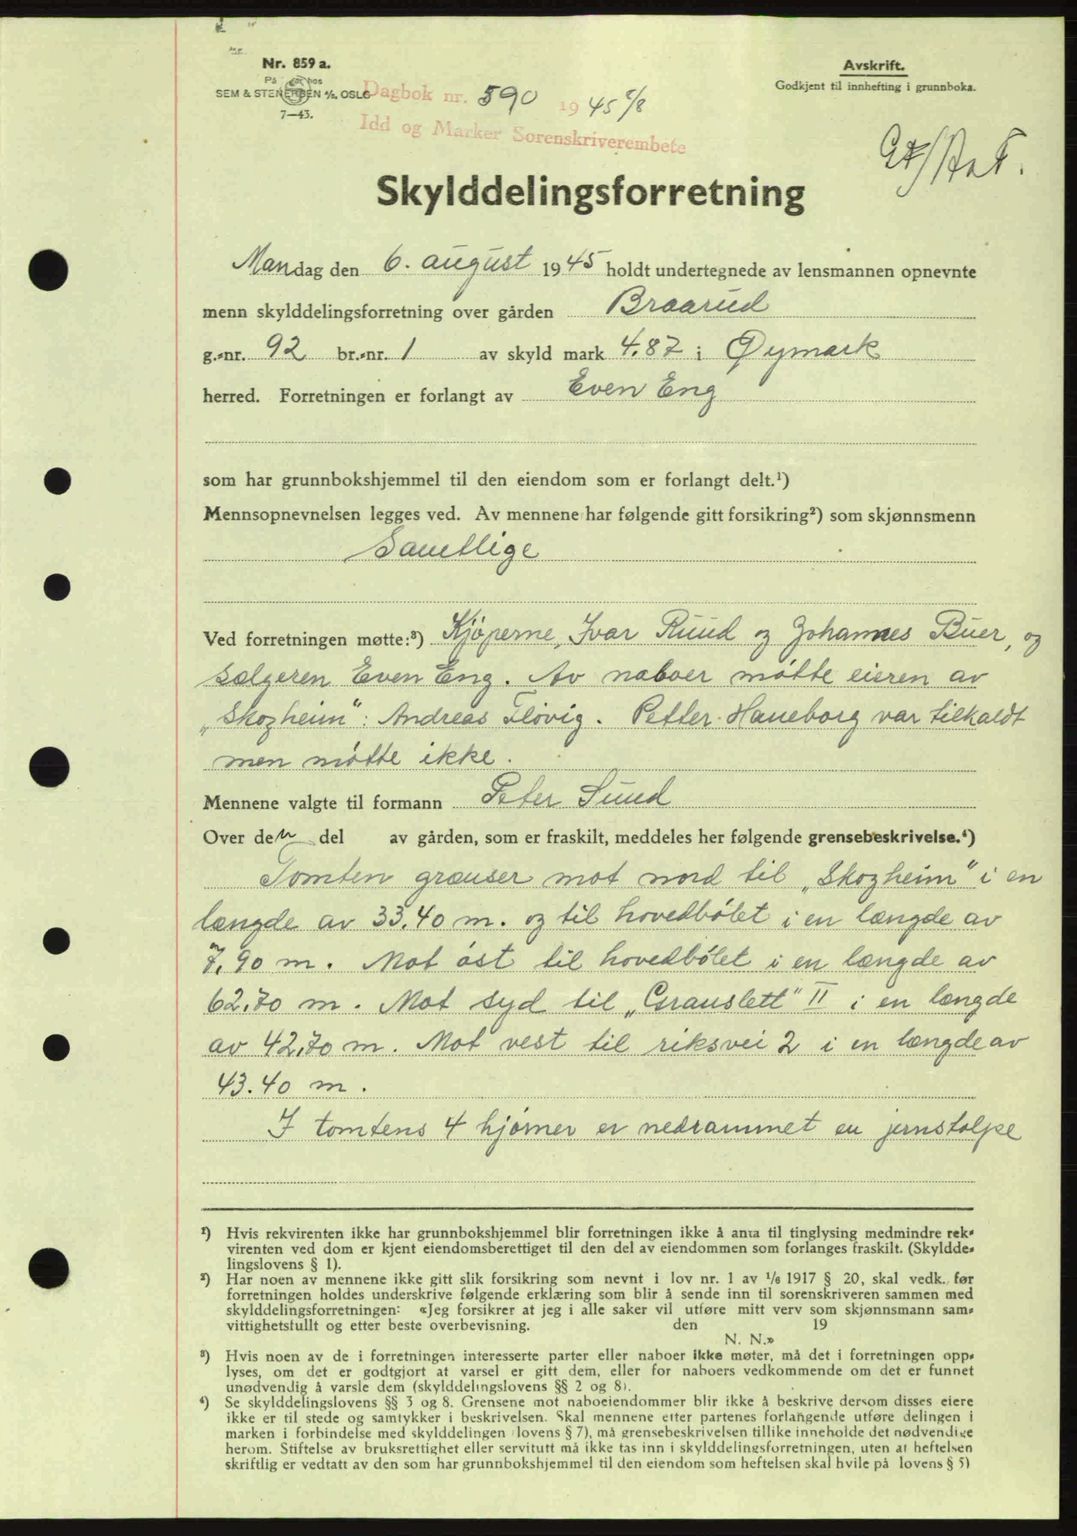 Nr. 859a.
På lager hos
SEM & STENERSEN A/S, OSLO
7—43.
Avskrift.
Godkjent til innhefting i grunnboka.
Dagbok nr. 590 1945 8/8
Idd og Marker Sorenskriverembete
Skylddelingsforretning
Mandag den 6. august 1945 holdt undertegnede av lensmannen opnevnte
menn skylddelingsforretning over gården Braarud
g.-nr. 92 br.-nr. 1 av skyld mark 4.87 i Øymark
herred. Forretningen er forlangt av Even Eng
som har grunnbokshjemmel til den eiendom som er forlangt delt.¹)
Mennsopnevnelsen legges ved. Av mennene har følgende gitt forsikring²) som skjønnsmenn
Samtlige
Ved forretningen møtte:³) Kjøperne, Ivar Ruud og Johannes Buer, og
sælgeren Even Eng. Av naboer møtte eieren av
„Skogheim": Andreas Fløvig. Petter Haneborg var tilkaldt
men møtte ikke.
Mennene valgte til formann Peter Sund
Over den del av gården, som er fraskilt, meddeles her følgende grensebeskrivelse.⁴)
Tomten grænser mot nord til „Skogheim" i en
længde av 33.40 m. og til hovedbølet i en længde av
7.90 m. Mot øst til hovedbølet i en længde av
62.70 m. Mot syd til „Granslett" II i en længde
av 42.70 m. Mot vest til riksvei 2 i en længde av
43.40 m.
I tomtens 4 hjørner er nedrammet en jernstolpe
¹) Hvis rekvirenten ikke har grunnbokshjemmel blir forretningen ikke å anta til tinglysing medmindre rek-
virenten ved dom er kjent eiendomsberettiget til den del av eiendommen som forlanges fraskilt. (Skyldde-
lingslovens § 1).
²) Har noen av mennene ikke gitt slik forsikring som nevnt i lov nr. 1 av 1/6 1917 § 20, skal vedk. før
forretningen holdes underskrive følgende erklæring som blir å sende inn til sorenskriveren sammen med
skylddelingsforretningen: «Jeg forsikrer at jeg i alle saker vil utføre mitt verv som skjønnsmann sam-
vittighetsfullt og etter beste overbevisning. den 19
N. N.»
³) Hvis noen av de i forretningen interesserte parter eller naboer ikke møter, må det i forretningen opp-
lyses, om det er godtgjort at varsel er gitt dem, eller for naboers vedkommende om det er funnet
unødvendig å varsle dem (skylddelingslovens §§ 2 og 8).
⁴) Se skylddelingslovens §§ 3 og 8. Grensene mot naboeiendommer blir ikke å beskrive dersom disses eiere
ikke er til stede og samtykker i beskrivelsen. Skal mennene etter partenes forlangende utføre delingen i
marken i forbindelse med skylddelingen (lovens § 7), må grensebeskrivelsen tillike inneholde det nødvendige
herom. Stiftelse av bruksrettighet eller servitutt må ikke tas inn i skylddelingsforretningen, uten at heftelsen
skriftlig er vedtatt av den som har grunnbokshjemmel til den eiendom som heftelsen skal hvile på (lovens § 5)